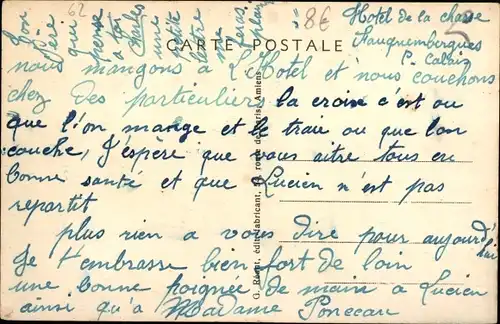 Ton
Père
qui
pense
a toi
Charles
une
petite
lettre
me
plai
62
8€
5
CARTE POSTALE
Hotel de la chasse
Fauquembergues
P. Calais
nous mangons a L'Hotel et nous couchons
chez des particuliers la croix c'est ou
que l'on mange et le trait ou que l'on
couche, J'espère que vous aitre tous en
bonne santé et que Lucien n'est pas
repartit
plus rien a vous dire pour aujourd'hui
Je t'embrasse bien fort de loin
une bonne poignee de main a Lucien
ainsi qu'a Madame
G. édit. fabricant, route de Paris, Amiens